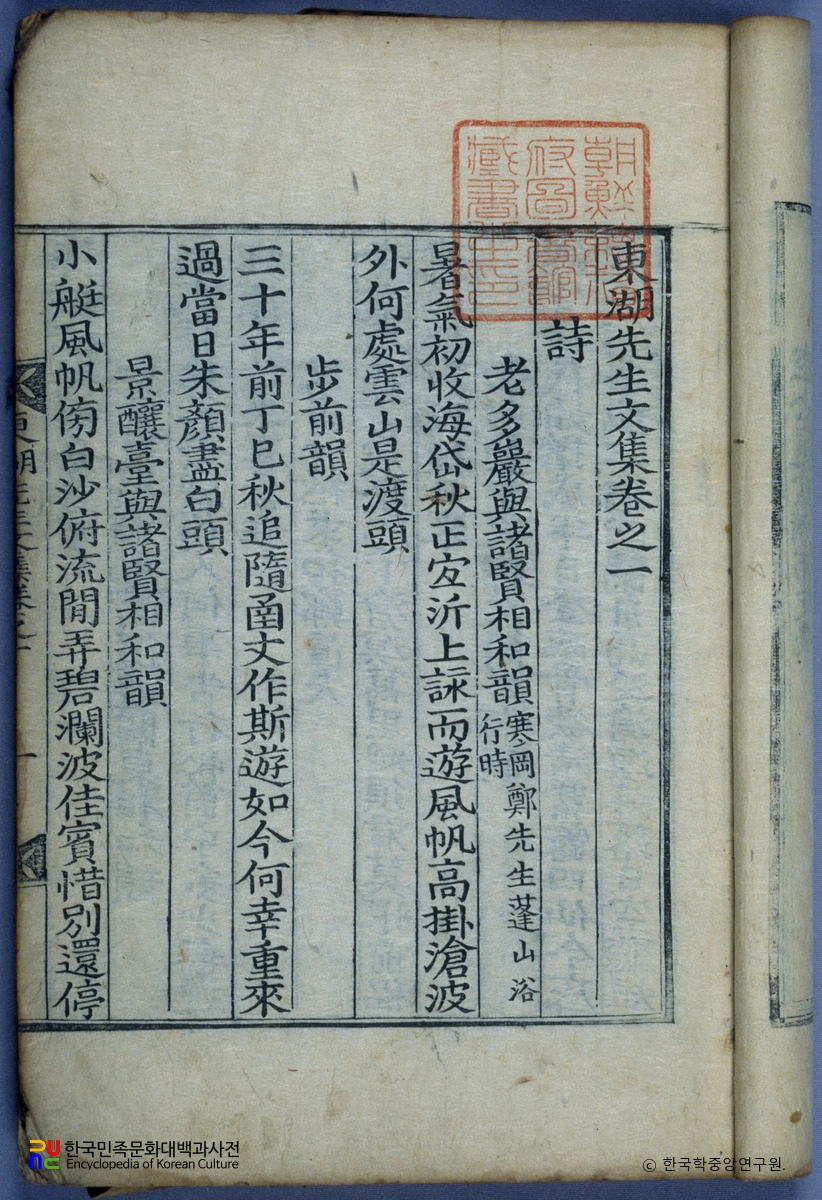 東湖先生文集卷之一
詩
老多巖與諸賢相和韻 寒岡鄭先生蓬山浴行時
暑氣初收海岱秋正宜沂上詠而遊風帆高掛滄波
外何處雲山是渡頭
步前韻
三十年前丁巳秋追隨函丈作斯遊如今何幸重來
過當日朱顏盡白頭
景釀臺與諸賢相和韻
小艇風帆傍白沙俯流閒弄碧瀾波佳賓惜別還停
東湖先生文集卷之一
一
朝鮮總督
府圖書館
藏書之印
한국민족문화대백과사전
Encyclopedia of Korean Culture
ⓒ 한국학중앙연구원.